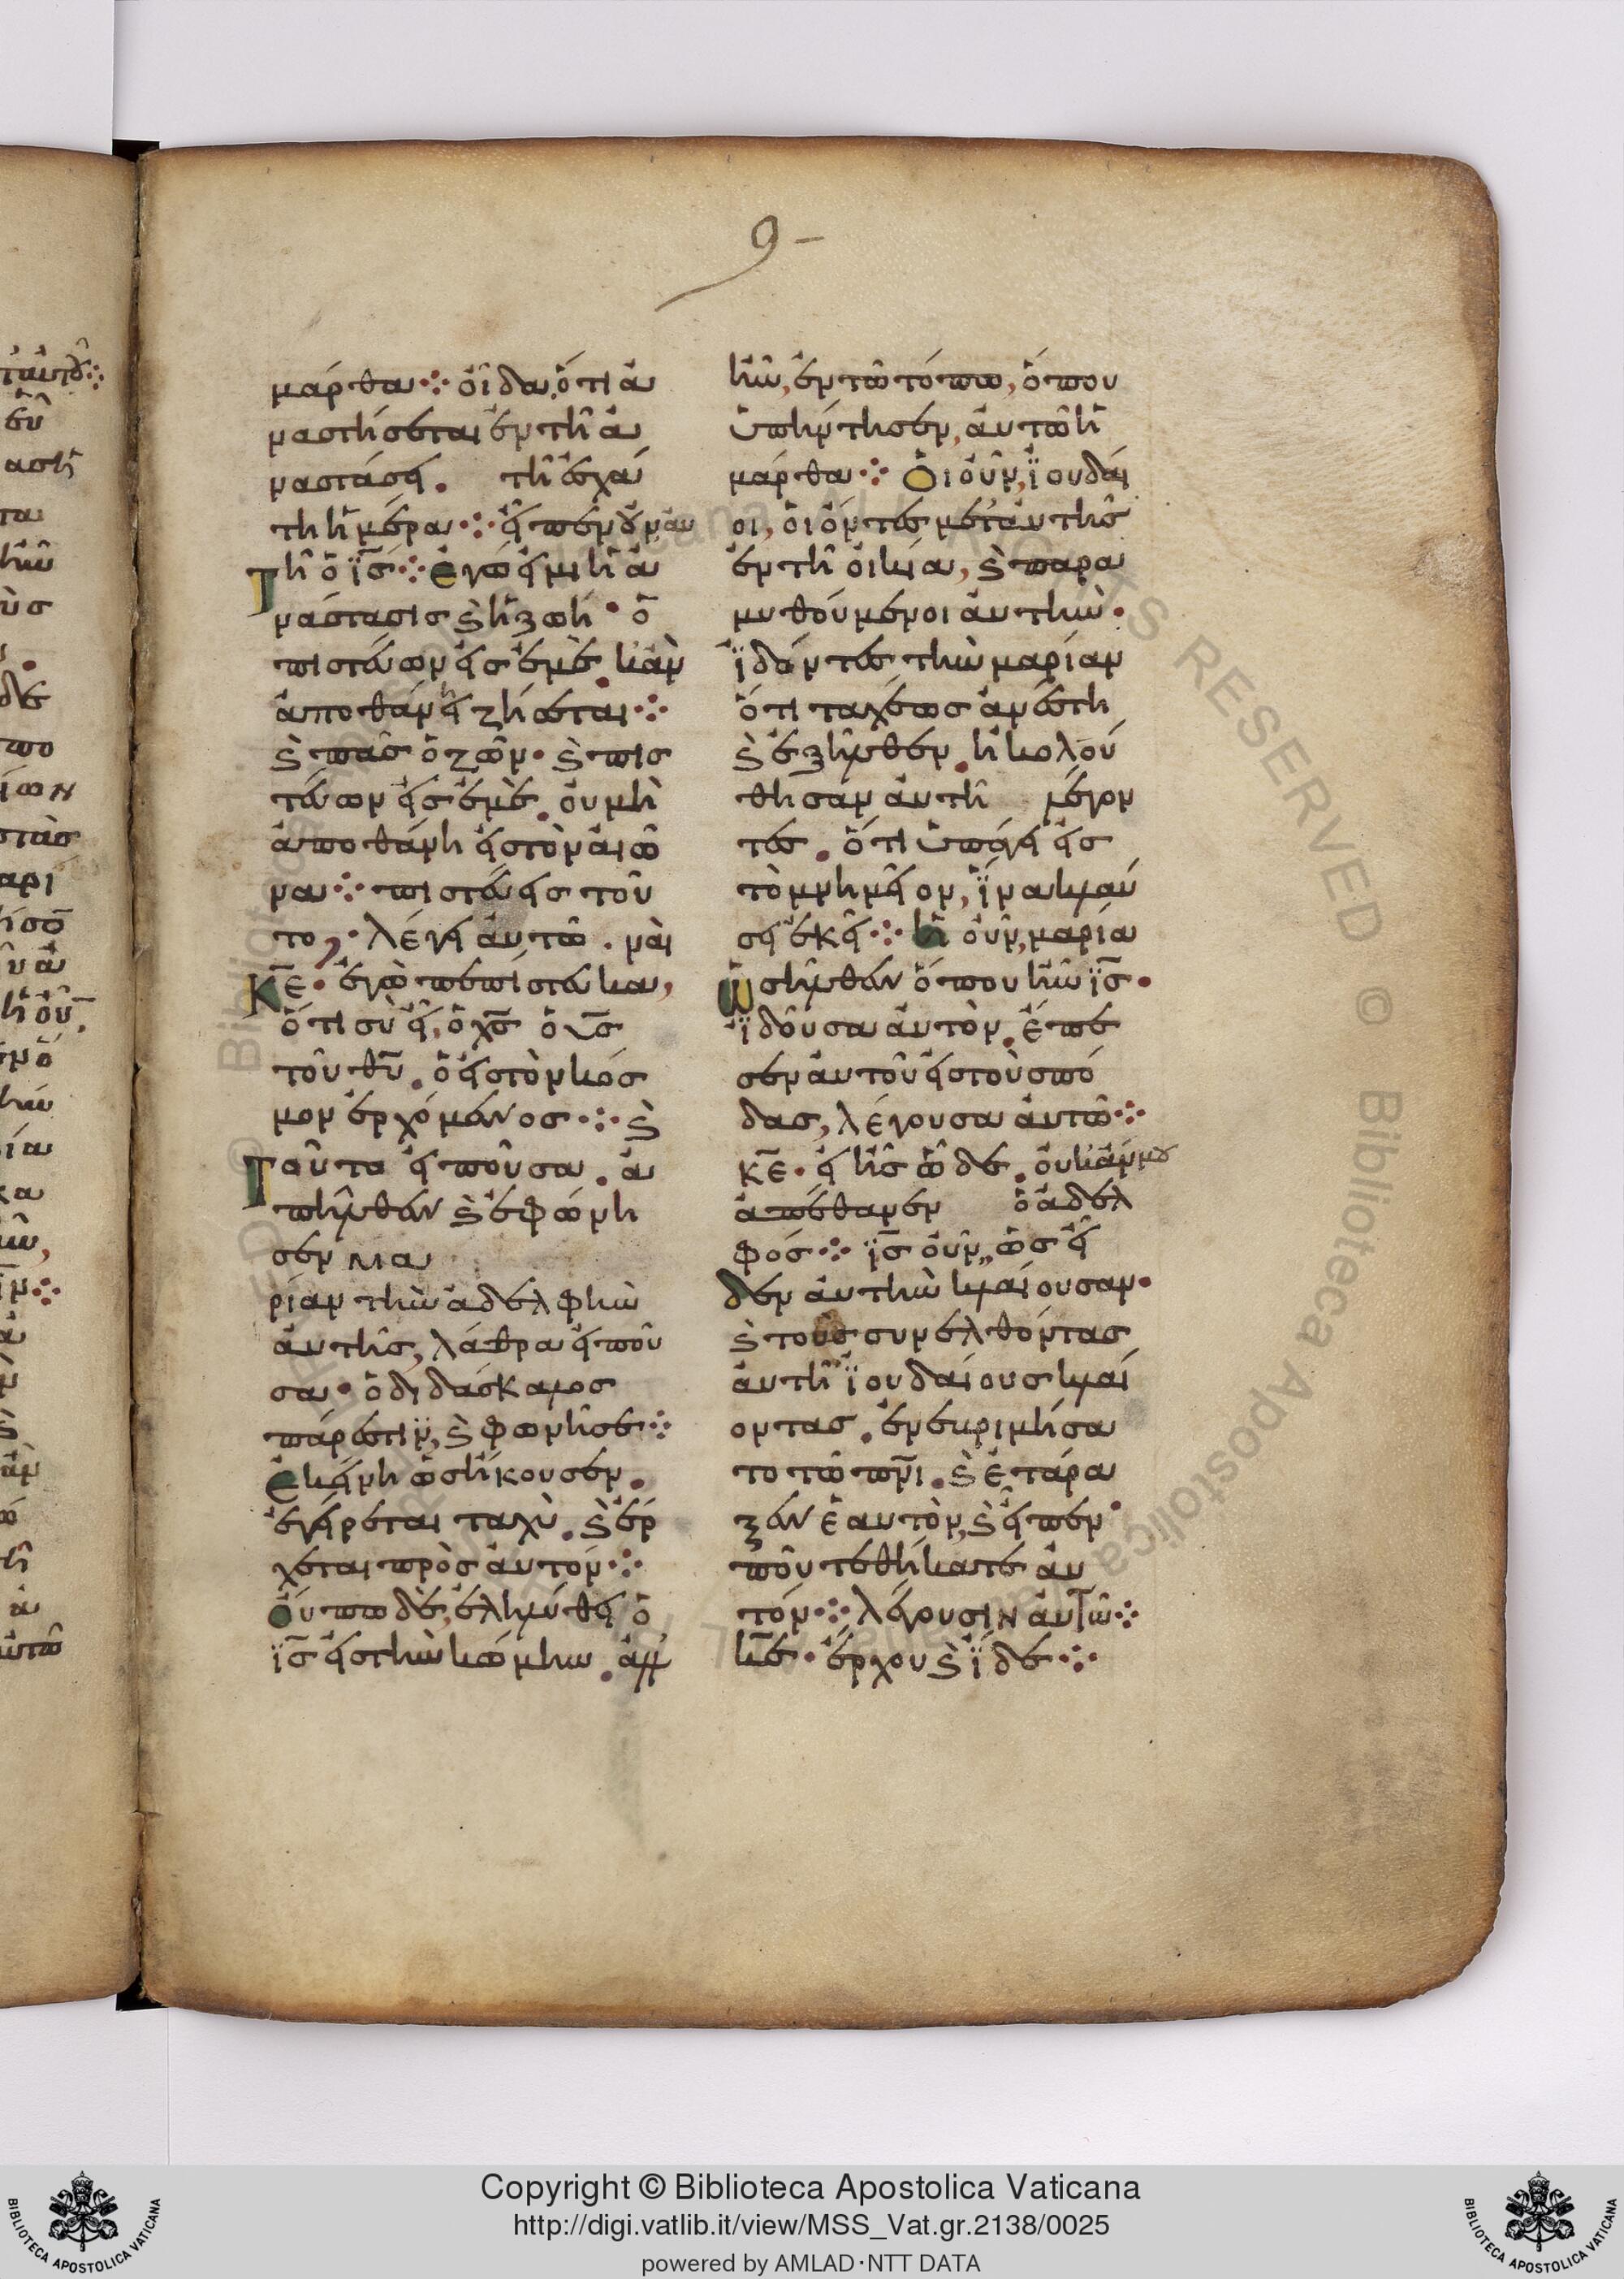 9-
μάρθα⁘ οἶδα, ὅτι ἀ
ναστήσεται ἐν τῆ ἀ
ναστάσει. τῆ ἐσχά
τη ἡμέρα⁘ εἶπεν οὖν αυ
τῆ ὁ ἰ̅ς̅⁘ ἐγώ εἰμι ἡ ἀ
νάστασις ϗ ἡ ζωή· ὁ
πιστεύων εἰς ἐμὲ. κἂν
ἀποθάνη ζήσεται⁘
ϗ πᾶς ὁ ζῶν· ϗ πισ
τεύων εἰς ἐμὲ. οὐ μὴ
ἀποθάνη εἰς τὸν αἰῶ
να⁘ πιστεύεις τοῦ
το; λέγει αὐτῶ. ναὶ
κ̅ε̅· ἐγὼ πεπίστευκα,
ὅτι σὺ εἶ, ὁ χ̅ς̅ ὁ υ̅ς̅
τοῦ θ̅υ̅. ὁ εἰς τὸν κόσ
μον ἐρχόμενος⁘ ϗ
ταῦτα εἰποῦσα. ἀ
πῆλθεν ϗ ἐφώνη
σεν μα
ρίαν τὴν ἀδελφὴν
αὐτῆς, λάθρα εἰποῦ
σα· ὁ διδάσκαλος
πάρεστιν, ϗ φωνῆ σε⁘
ἐκείνη ὡς ἤκουσεν.
ἐγείρεται ταχὺ. ϗ ἔρ
χεται πρὸς αὐτόν⁘
οὔπω δὲ, ἐληλύθει ὁ
ἰ̅ς̅ εἰς τὴν κώμην. ἀλλ'
ἦν, ἐν τῶ τόπω, ὅπου
ὑπήντησεν, αὐτῶ ἡ
μάρθα⁘ Οἱ οὖν, ἰουδαῖ
οι, οἱ ὄντες μετ' αὐτῆς
ἐν τῆ οἰκία, ϗ παρα
μυθούμενοι αὐτὴν·
ἰδόντες τὴν μαρίαν
ὅτι ταχέως ἀνέστη
ϗ ἐξῆλθεν. ἠκολού
θησαν αὐτῆ λέγον
τες. ὅτι ὑπάγει εἰς
τὸ μνημεῖον, ἵνα κλαύ
ση ἐκεῖ⁘ ἡ οὖν, μαρία
ὡς ἦλθεν ὅπου ἦν ἰ̅ς̅·
ἰδοῦσα αὐτὸν. ἔπε
σεν αὐτοῦ εἰς τοὺς πό
δας, λέγουσα αὐτῶ⁘
κ̅ε̅· εἰ ἦς ὧδε. οὐκ ἄν μου
ἀπέθανεν ὁ ἀδελ
φός⁘ ἰ̅ς̅ οὖν, ὡς εἶ
δεν αὐτὴν κλαίουσαν·
ϗ τοὺς συνελθόντας
αὐτῆ ἰουδαίους κλαί
οντας. ἐνεβριμήσα
το τῶ π̅ν̅ι̅. ϗ ἐτάρα
ξεν ἑαυτὸν, ϗ εἶπεν·
ποῦ τεθήκατε αὐ
τόν⁘ λέγουσιν αὐτῶ⁘
κ̅ε̅· ἔρχου ϗ ἴδε⁘
BIBLIOTECA APOSTOLICA VATICANA
Copyright © Biblioteca Apostolica Vaticana
http://digi.vatlib.it/view/MSS_Vat.gr.2138/0025
powered by AMLAD·NTT DATA
BIBLIOTECA APOSTOLICA VATICANA